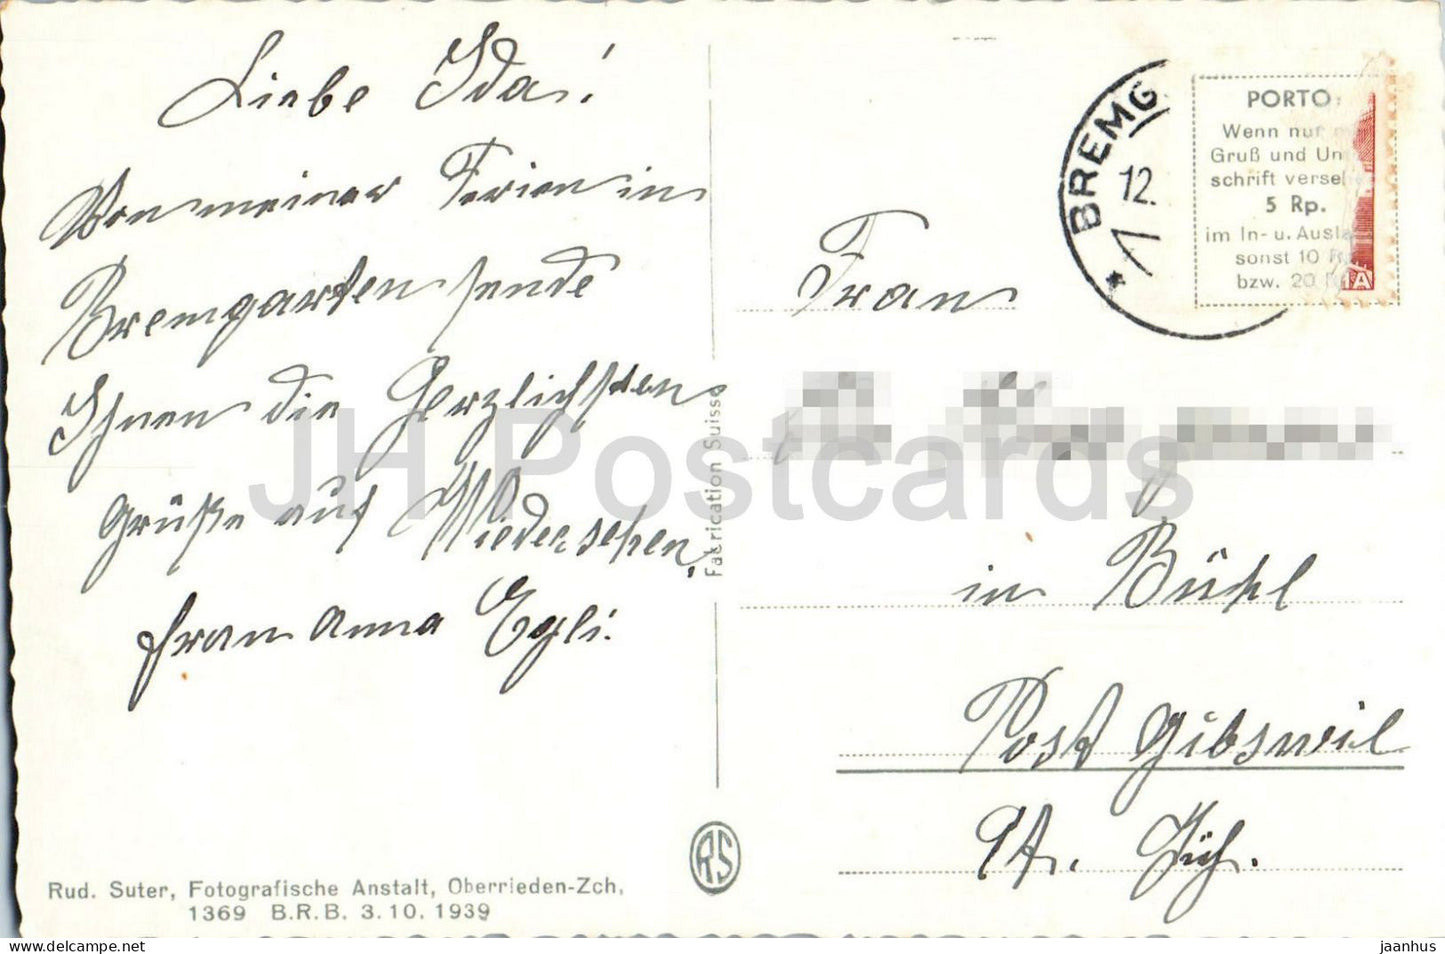 Liebe Ida!
Von meiner Ferien in
Bremgarten sende
Ihnen die Herzlichsten
Grüße auf Wiedersehen.
Frau Anna Egli.
Rud. Suter, Fotografische Anstalt, Oberrieden-Zch,
1369 B.R.B. 3.10.1939
Fabrication Suisse
RS
BREMG
12.
1
PORTO:
Wenn nur
Gruß und Un
schrift verseh
5 Rp.
im In- u. Ausla
sonst 10 R
bzw. 20
IA
Frau
in Bühl
Post Gibswil
Kt. Zürh.
JH Postcards
www.delcampe.net
jaanhus